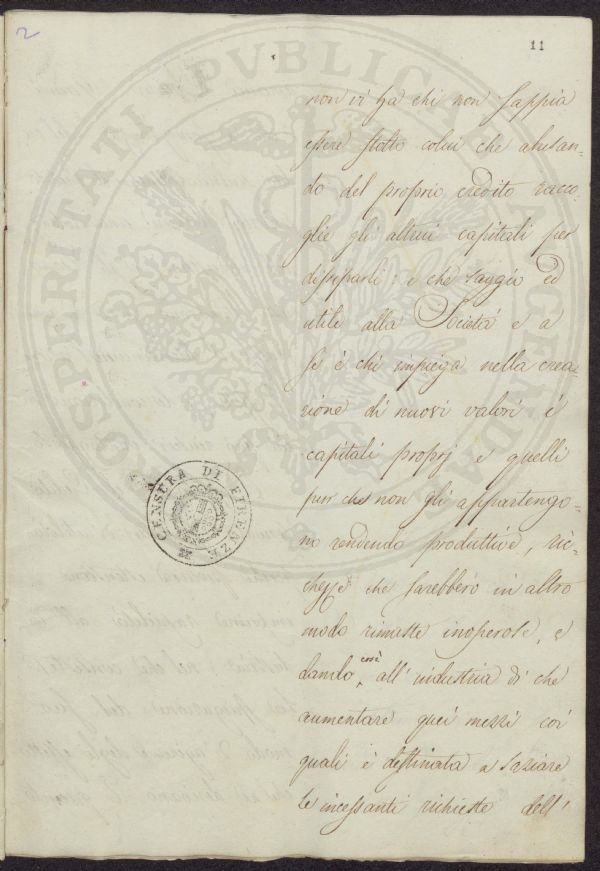 2
11
non vi ha chi non sappia
essere stolto colui che abusan-
do del proprio credito racco-
glie gli altrui capitali per
dissiparli: e che saggio ed
utile alla Società e a
se è chi impiega nella crea-
zione di nuovi valori i
capitali proprj e quelli
pur che non gli appartengo-
no rendendo produttive, ric-
chezze che sarebbero in altro
modo rimaste inoperose, e
dando così all'industria di che
aumentare quei mezzi coi
quali è destinata a saziare
le incessanti richieste dell'
CENSURA DI FIRENZE
PROSPERITATI PVBLICAE AVGENDAE